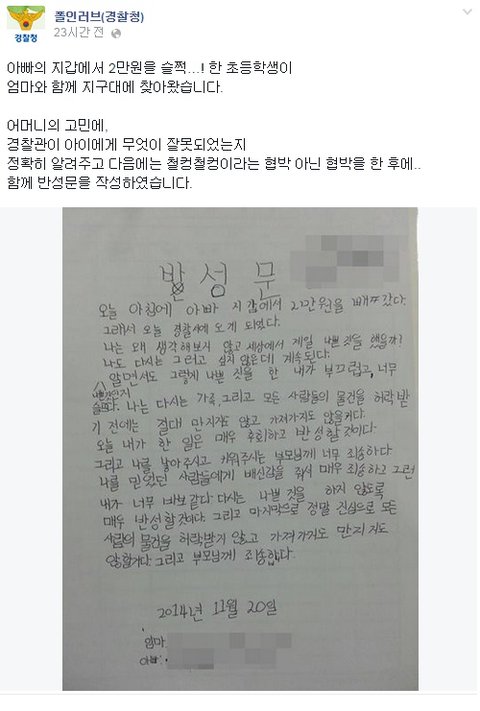 폴인러브(경찰청)
23시간 전
경찰청
아빠의 지갑에서 2만원을 슬쩍...! 한 초등학생이
엄마와 함께 지구대에 찾아왔습니다.
어머니의 고민에,
경찰관이 아이에게 무엇이 잘못되었는지
정확히 알려주고 다음에는 철컹철컹이라는 협박 아닌 협박을 한 후에..
함께 반성문을 작성하였습니다.
반성문
오늘 아침에 아빠 지갑에서 2만원을 빼갔다.
그래서 오늘 경찰서에 오게 되었다.
나는 왜 생각해보지 않고 세상에서 제일 나쁜 짓을 했을까?
나도 다시는 그러고 싶지 않은데 계속된다.
알면서도 그렇게 나쁜 짓을 한 내가 부끄럽고, 너무
나쁜짓인지
슬프다. 나는 다시는 가족, 그리고 모든 사람들의 물건을 허락받
기 전에는 절대 마지지도 않고 가져가지도 않을거다.
오늘 내가 한 일은 매우 후회하고 반성할 것이다.
그리고 나를 낳아주시고 키워주시는 부모님께 너무 죄송하다
나를 믿었던 사람들에게 배신감을 줘서 매우 죄송하고 그런
내가 너무 바보같다 다시는 나쁠 것을 하지 않도록
매우 반성할 것이다. 그리고 마지막으로 정말 진심으로 모든
사람의 물건을 허락받지 않고 가져가거도 만지지도
않할거다. 그리고 부모님께 죄송합다.
2014년 11월 20일
엄마:
아빠: